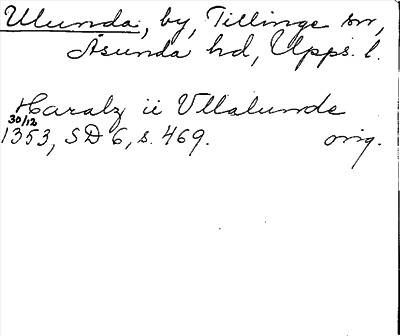 Ulunda, by, Tillinge sn,
Åsunda hd, Upps. l.
Haralz ii Vllalunde
30/12
1353, SD 6, s. 469. orig.